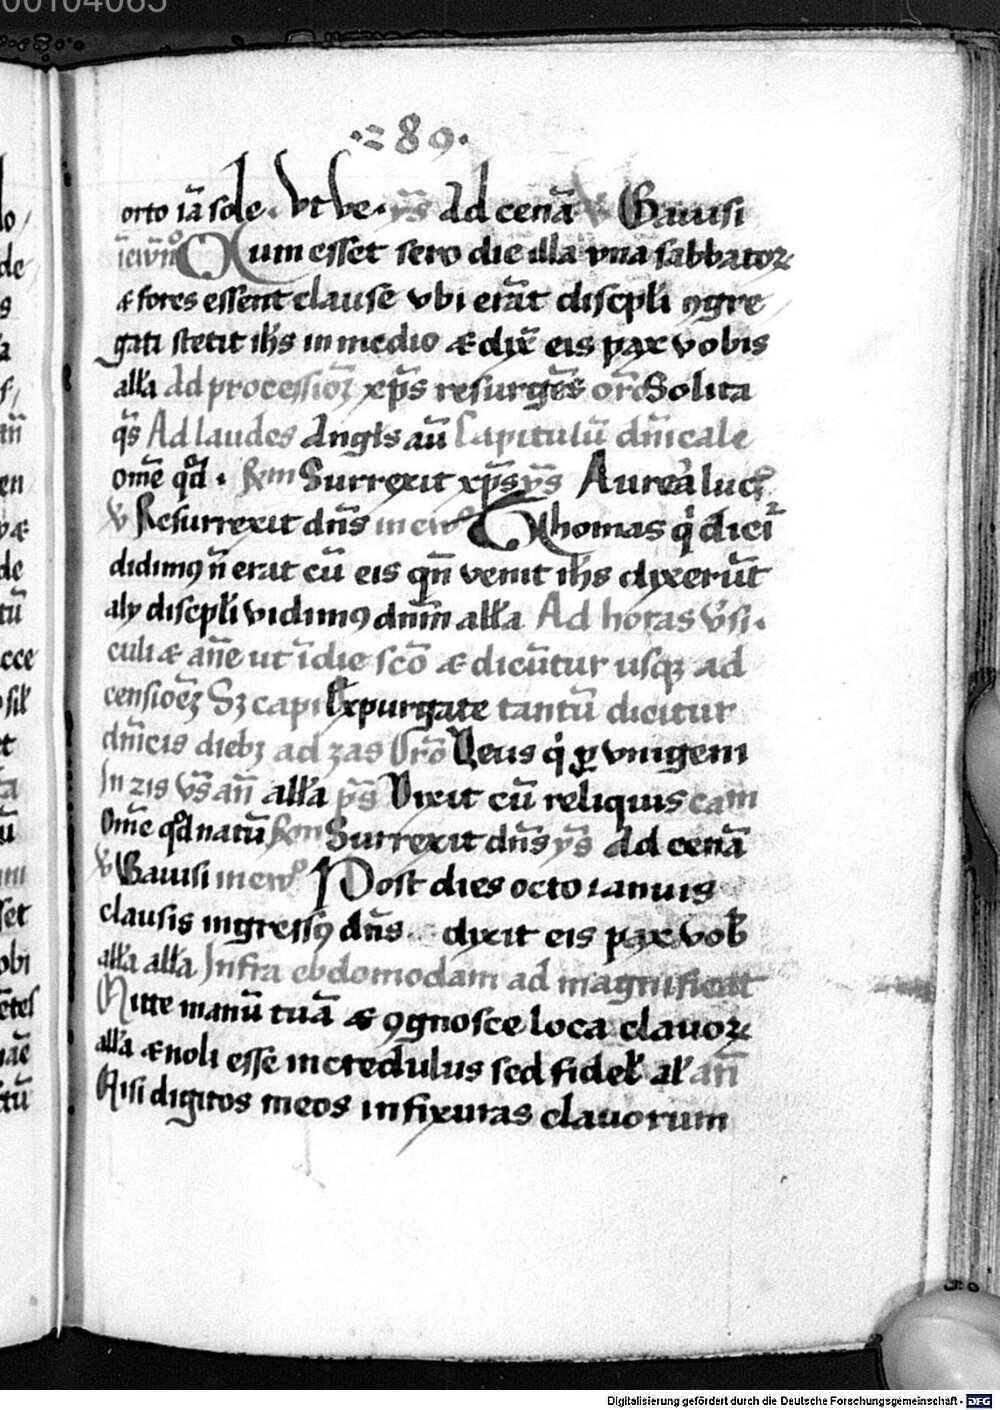 00104065
·289·
orto iā sole. Vt Ve. ys̄ Ad cenā V Gauisi
in ewº Cum esset sero die illa vna sabbatoꝝ
& fores essent clause vbi erāt discp̄li ꝯgre
gati stetit ih̄s in medio & dix̄ eis pax vobis
all̄a Ad processioꝫ xp̄s resurgēs orō Solita
q̄s Ad laudes Angl̄s aū Capitulū dn̄icale
Om̄e qd̄. Rm̄ Surrexit xp̄s ys̄ Aurea luc̄
V Resurrexit dn̄s in ewº Thomas q̇ dicit᷑
didimꝰ n̄ erat cū eis qn̄ venit ih̄s dixerūt
alij discp̄li vidimꝰ dn̄m all̄a Ad horas v̄si.
culi & an̄e ut ī die scō & dicūtur usqꝫ ad
censioēꝫ Sꝫ capi Expurgate tantū dicitur
dn̄icis diebꝫ ad zas Orō Deus q̇ ꝑ vnigeni
In zis vs̄ an̄ all̄a ps̄ Dixit cū reliquis cam
Om̄e qd̄ natū Rm̄ Surrexit dn̄s ys̄ Ad cenā
V Gauisi in ewº Post dies octo ianuis
clausis ingressꝰ dn̄s dixit eis pax vob̄
all̄a all̄a Infra ebdomodam ad magnificat
Mitte manū tuā & ꝯgnosce loca clauoꝝ
all̄a & noli esse incredulus sed fidel̄ al̄ an̄
Nisi digitos meos in fixuras clauorum
Digitalisierung gefördert durch die Deutsche Forschungsgemeinschaft - DFG